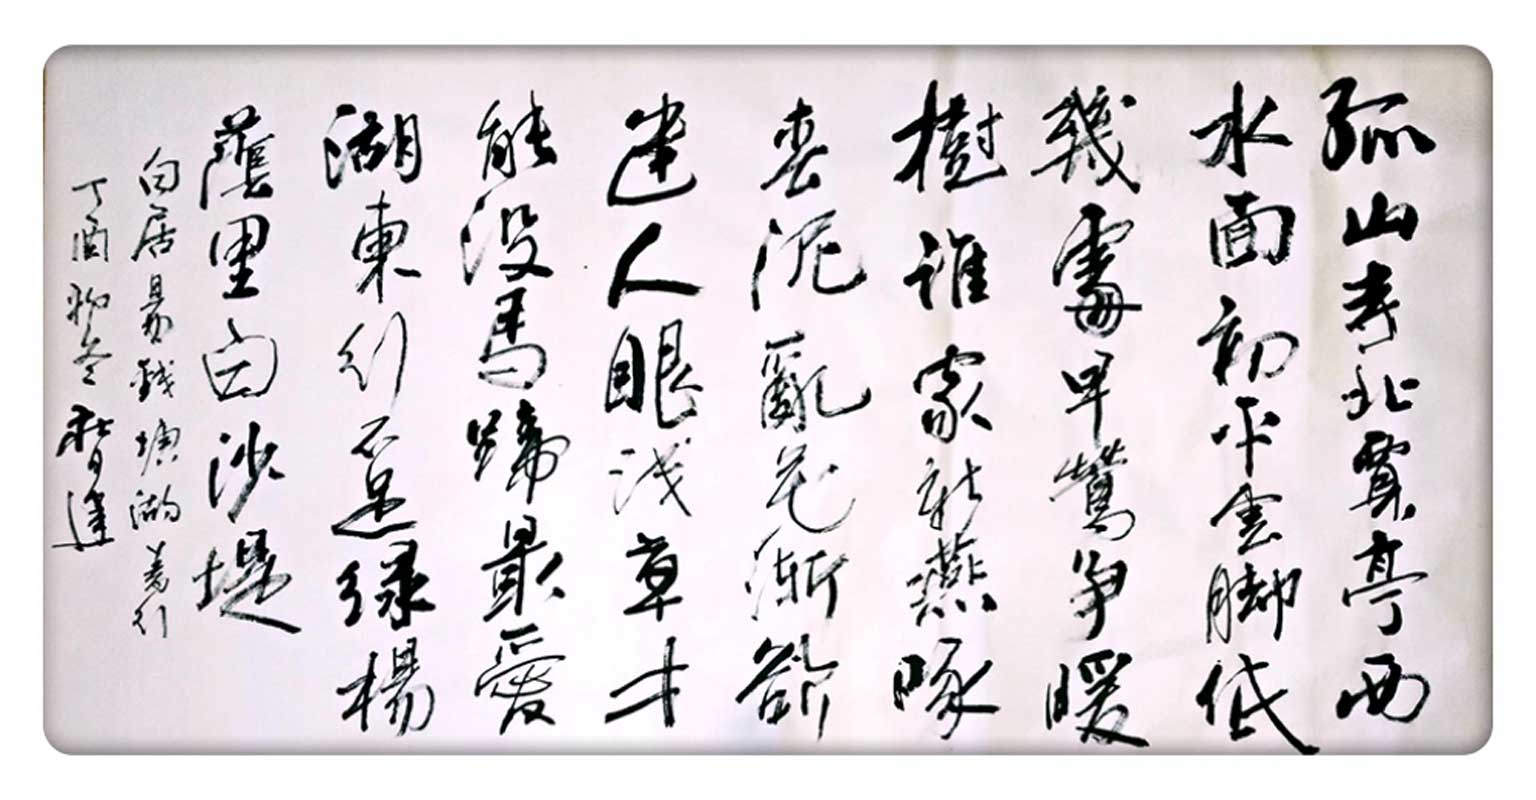 孤山寺北賈亭西
水面初平雲脚低
幾處早鶯争暖
樹誰家新燕啄
春泥亂花漸欲
迷人眼浅草才
能没馬蹄最愛
湖東行不足緑楊
蔭里白沙堤
白居易錢塘湖春行
丁酉初冬